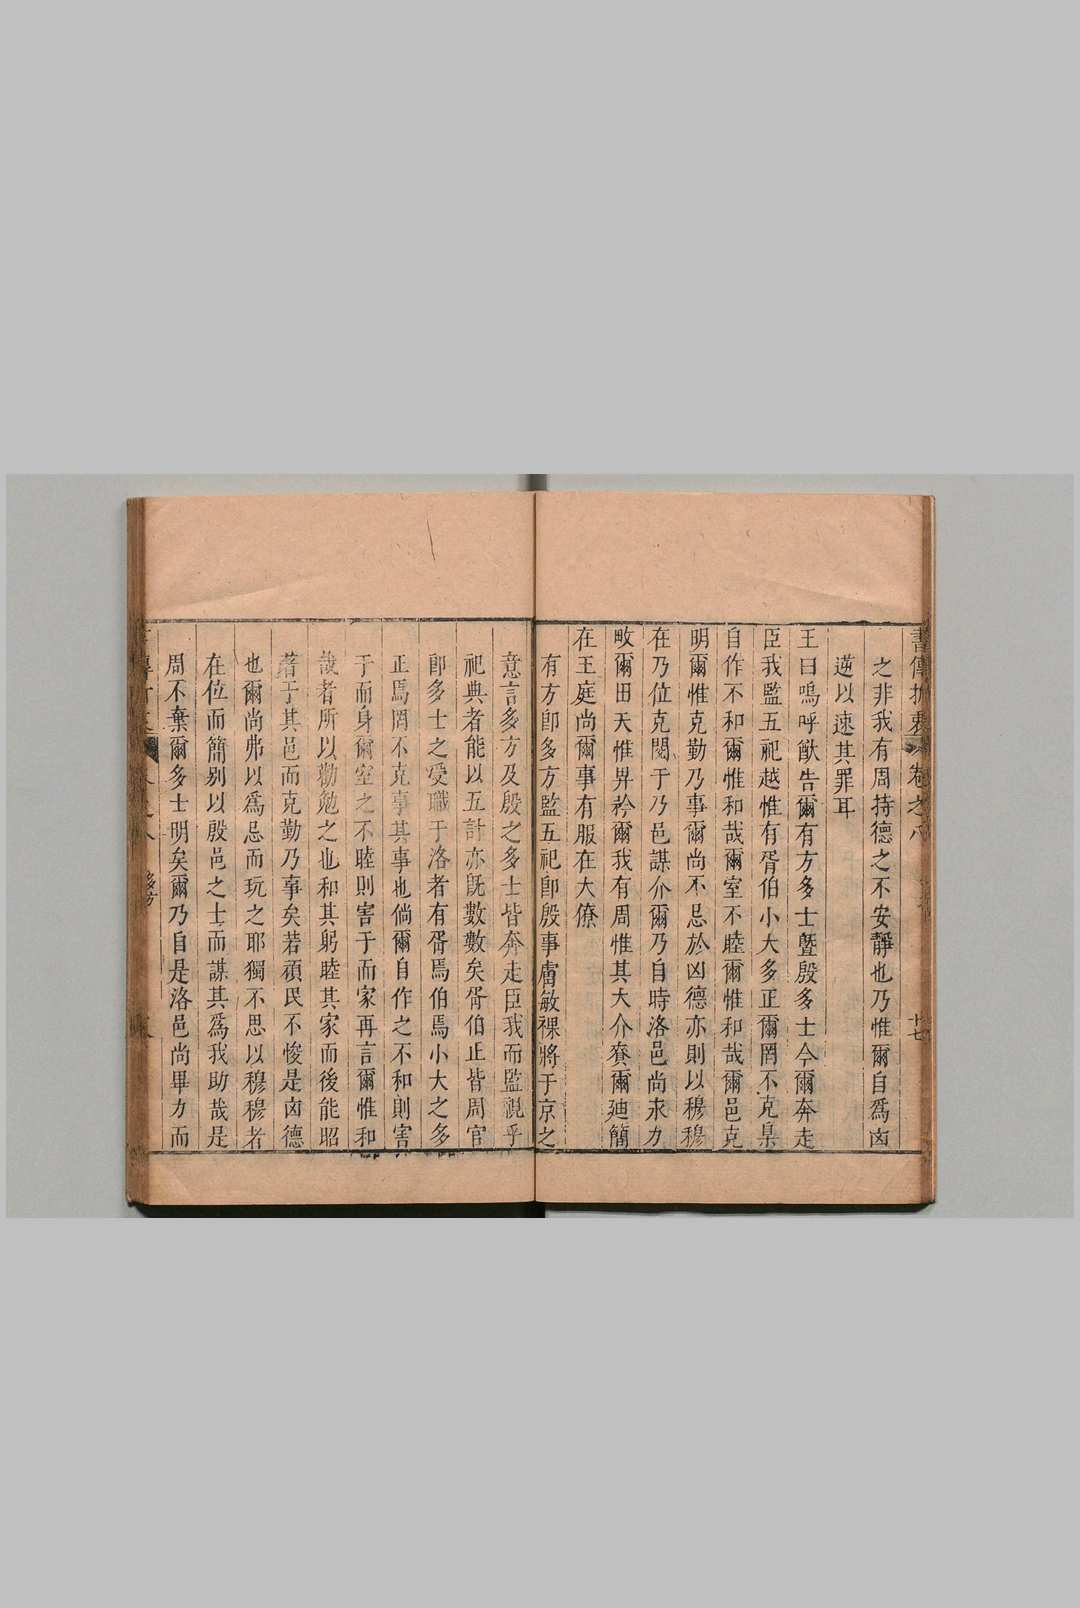 書傳折衷 卷之八 十七
之非我有周持德之不安靜也乃惟爾自爲凶
逆以速其罪耳
王曰嗚呼猷告爾有方多士曁殷多士今爾奔走
臣我監五祀越惟有胥伯小大多正爾罔不克臬
自作不和爾惟和哉爾室不睦爾惟和哉爾邑克
明爾惟克勤乃事爾尚不忌於凶德亦則以穆穆
在乃位克閱于乃邑謀介爾乃自時洛邑尚永力
畋爾田天惟畀矜爾我有周惟其大介賚爾廸簡
在王庭尚爾事有服在大僚
有方卽多方監五祀卽殷事膚敏祼將于京之
意言多方及殷之多士皆奔走臣我而監視乎
祀典者能以五計亦旣數數矣胥伯正皆周官
卽多士之受職于洛者有胥焉伯焉小大之多
正焉罔不克事其事也倘爾自作之不和則害
于而身爾室之不睦則害于而家再言爾惟和
哉者所以勸勉之也和其躬睦其家而後能昭
著于其邑而克勤乃事矣若頑民不悛是凶德
也爾尚弗以爲忌而玩之耶獨不思以穆穆者
在位而簡别以殷邑之士而謀其爲我助哉是
周不棄爾多士明矣爾乃自是洛邑尚畢力而
多方